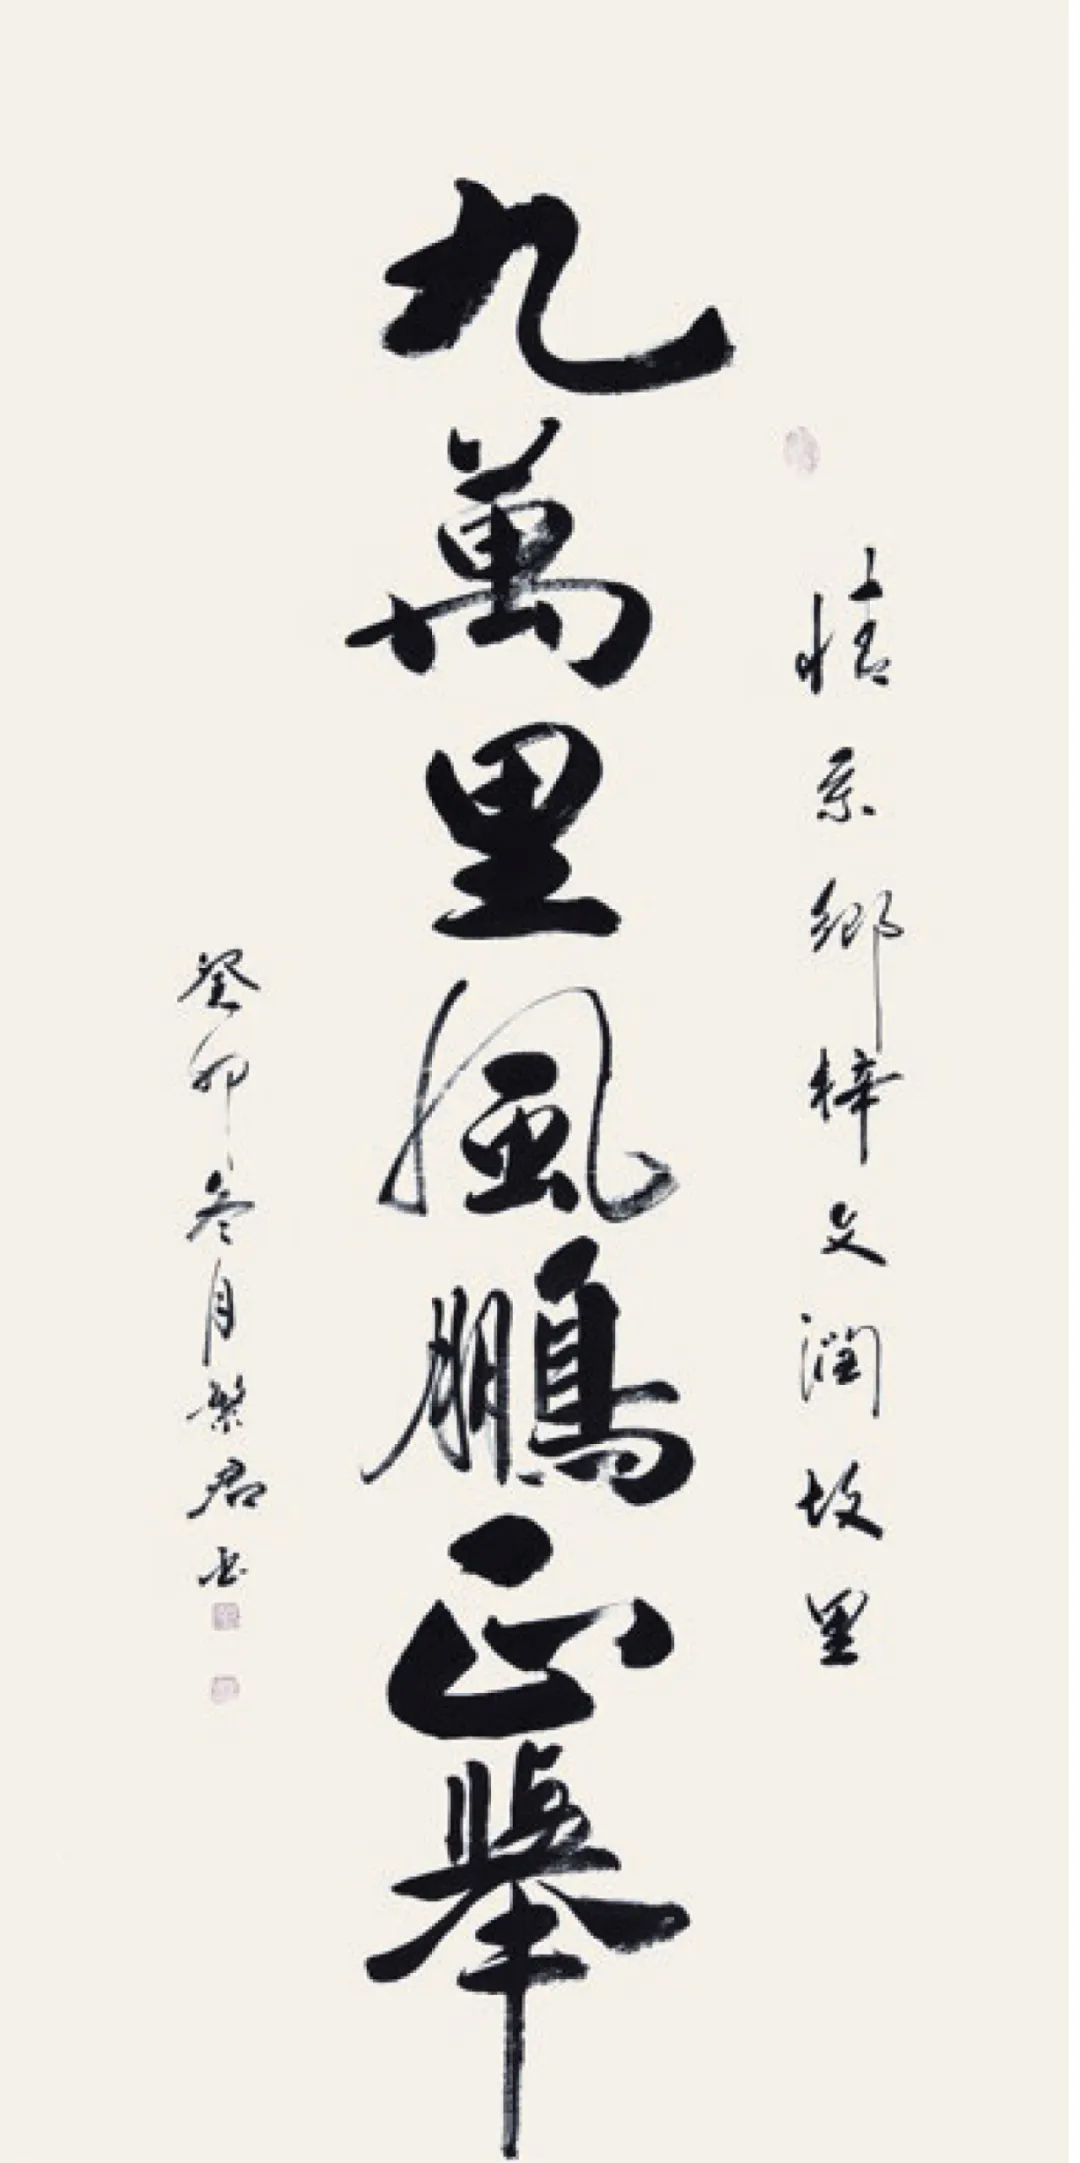 情系鄉梓文润故里
九萬里風鵬正舉
癸卯冬月繁君书